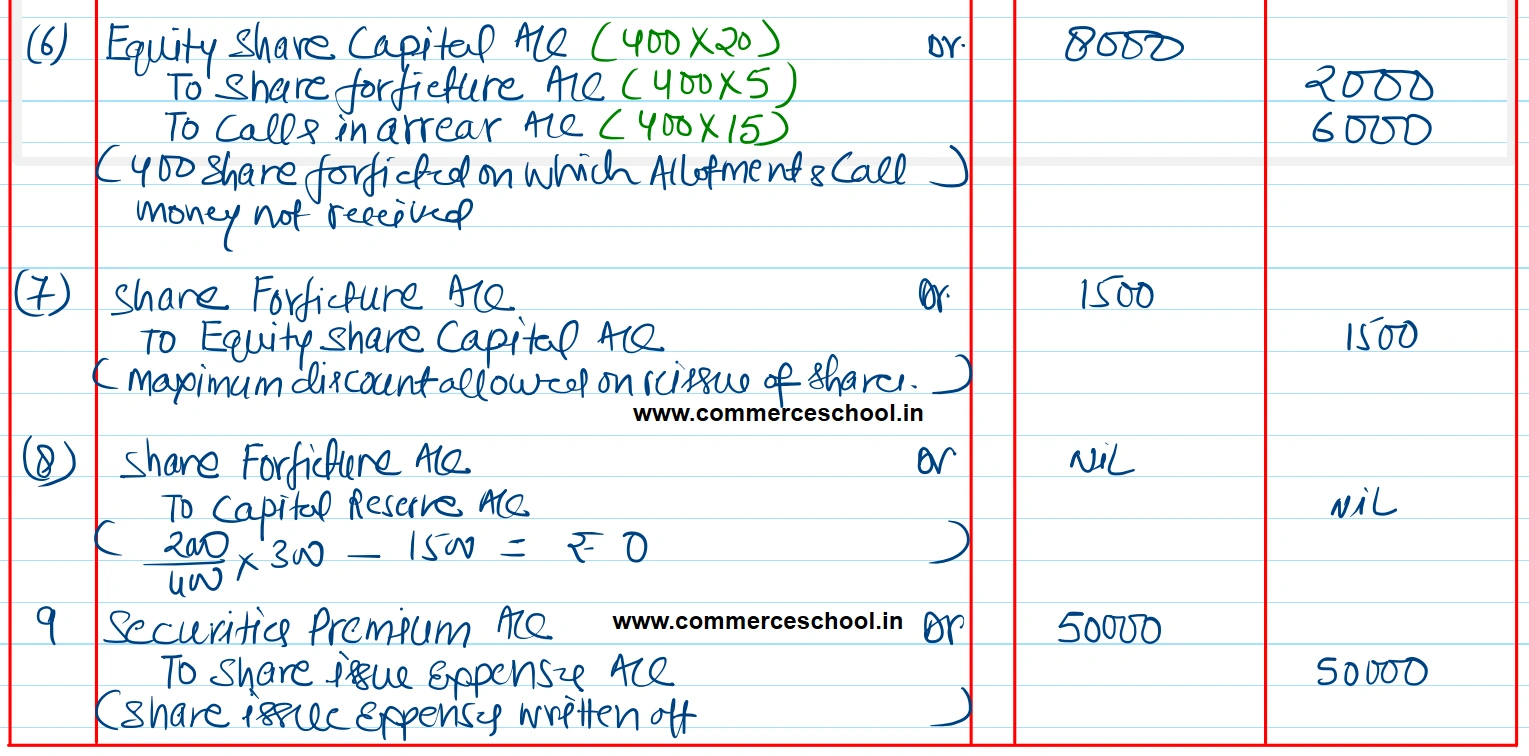 (6) Equity Share Capital A/c (400 X 20) Dr. 8000
To Share forficture A/c (400 X 5) 2000
To Calls in arrear A/c (400 X 15) 6000
(400 Share forficted on which Allotment & Call
money not received)
(7) Share Forficture A/c Dr. 1500
To Equity Share Capital A/c 1500
(Maximum discount allowed on reissue of share.)
www.commerceschool.in
(8) Share Forficture A/c Dr NiL
To Capital Reserve A/c NiL
(2000/400 X 300 – 1500 = ₹ 0)
9 Securities Premium A/c www.commerceschool.in Dr 50000
To Share issue Expense A/c 50000
(Share issue Expenses written off)